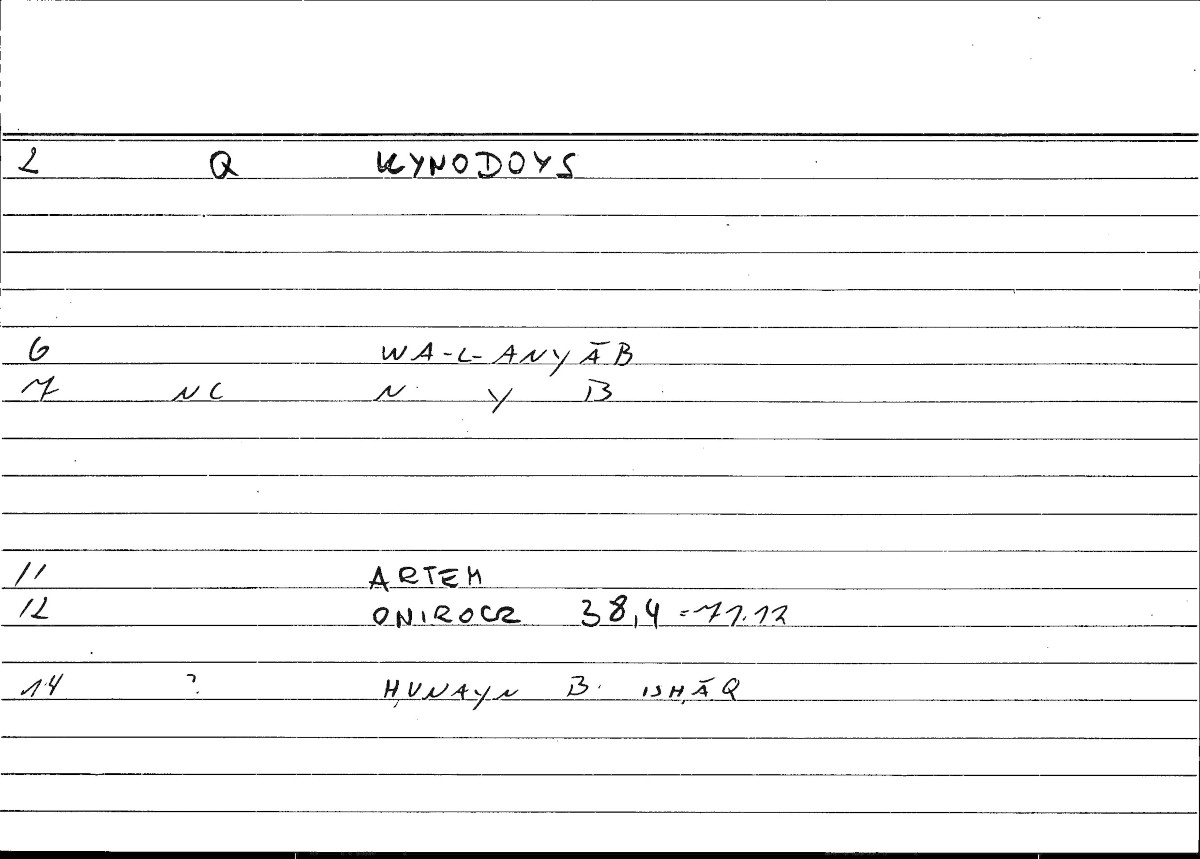 2 Q KYNODOYS
6 WA-L-ANYĀB
7 NC N Y B
11 ARTEM
12 ONIROCR 38,4 = 71.12
14 ? ḤUNAYN B. ISḤĀQ